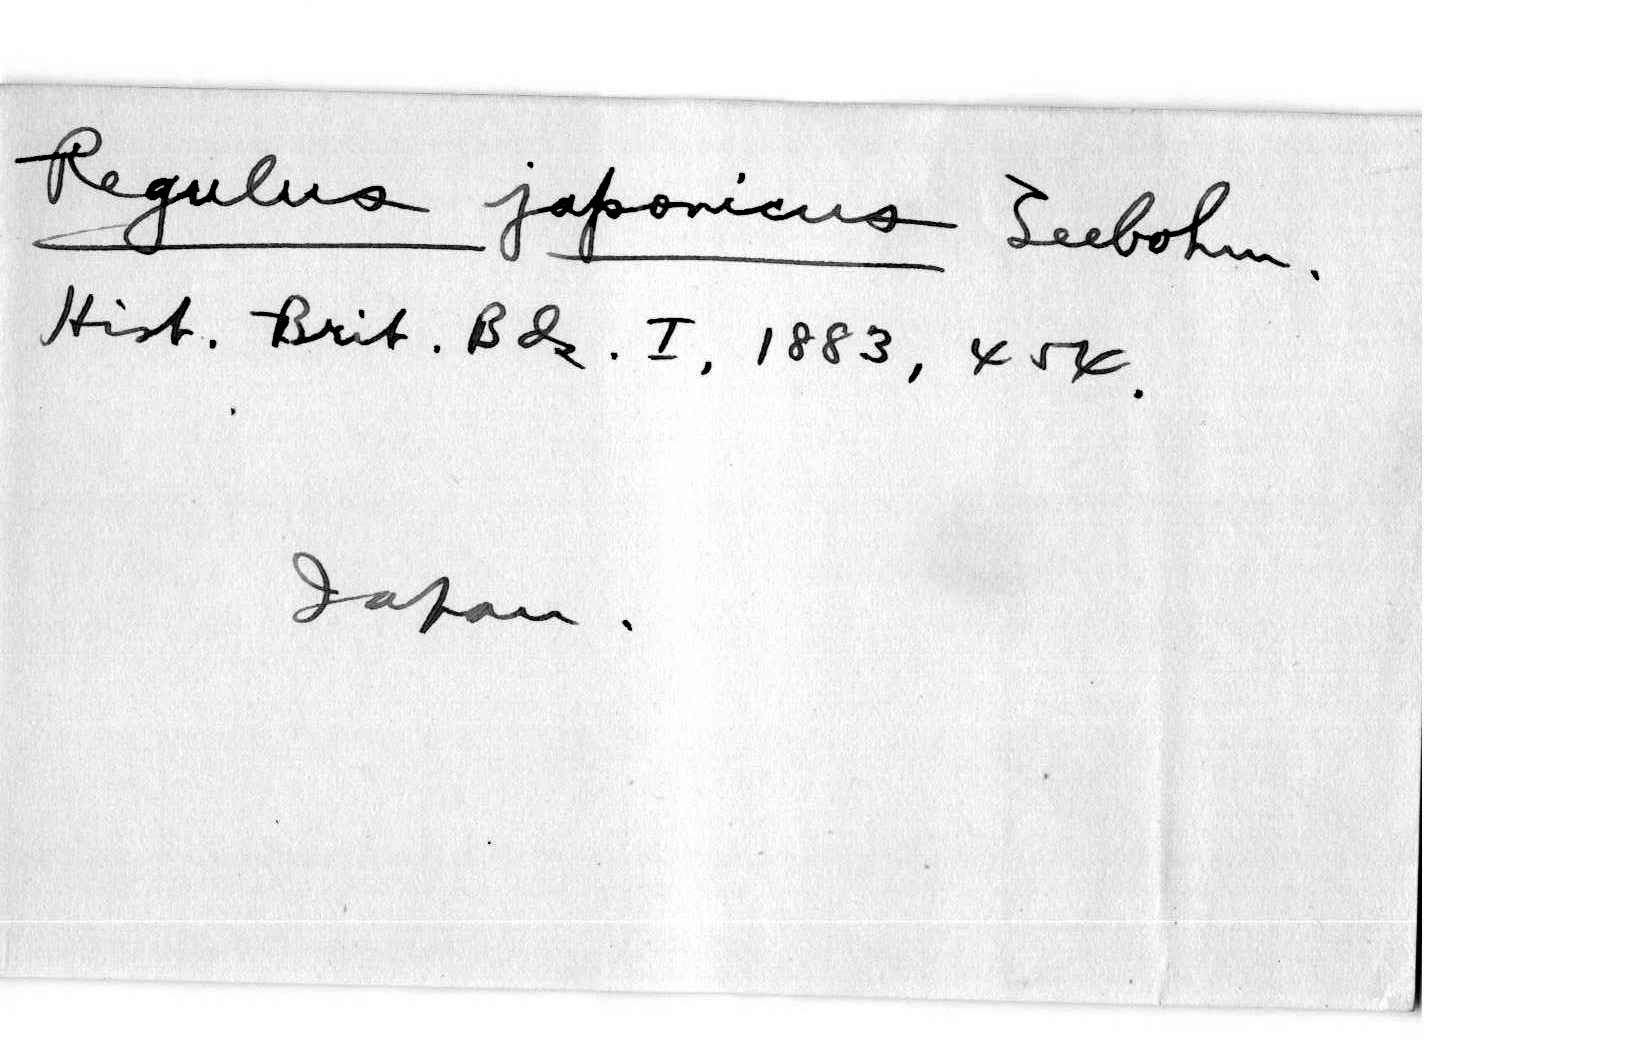 Regulus japonicus Seebohm.
Hist. Brit. Bds. I, 1883, 454.
Japan.